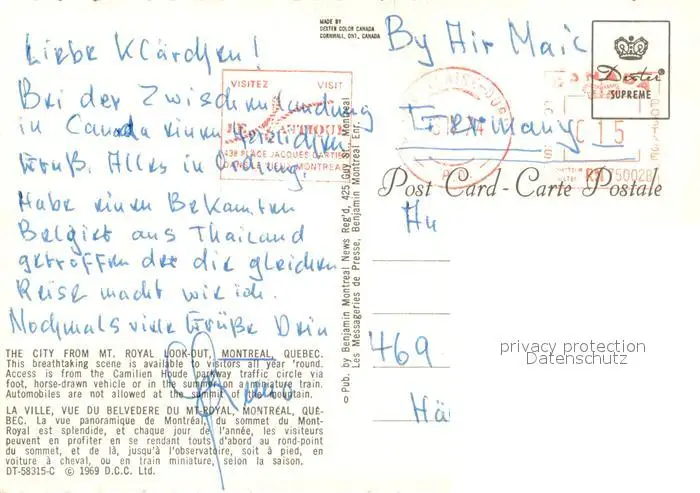 MADE BY
DEXTER COLOR CANADA
CORNWALL, ONT., CANADA
Liebe Klärchen!
Bei der Zwischenlandung
in Canada einen herzlichen
Gruß. Alles in Ordnung!
Habe einen Bekannten
Belgier aus Thailand
getroffen der die gleichen
Reise macht wie ich.
Nochmals viele Grüße Dein
VISITEZ VISIT
438 PLACE JACQUES CARTIER
DANS LE VIEUX MONTREAL
THE CITY FROM MT. ROYAL LOOK-OUT, MONTREAL, QUEBEC.
This breathtaking scene is available to visitors all year 'round.
Access is from the Camillien Houde parkway traffic circle via
foot, horse-drawn vehicle or in the summer on a miniature train.
Automobiles are not allowed at the summit of the mountain.
LA VILLE, VUE DU BELVEDERE DU MT-ROYAL, MONTRÉAL, QUÉ-
BEC. La vue panoramique de Montréal, du sommet du Mont-
Royal est splendide, et chaque jour de l'année, les visiteurs
peuvent en profiter en se rendant touts d'abord au rond-point
du sommet, et de là, jusqu'à l'observatoire, soit à pied, en
voiture à cheval, ou en train miniature, selon la saison.
DT-58315-C © 1969 D.C.C. Ltd.
Pub. by Benjamin Montreal News Reg'd, 425 Guy St., Montreal
Les Messageries de Presse, Benjamin Montreal Enr.
By Air Mail
Dexter®
SUPREME
Germany
C 15
Post Card - Carte Postale
An
469
Hä
privacy protection
Datenschutz